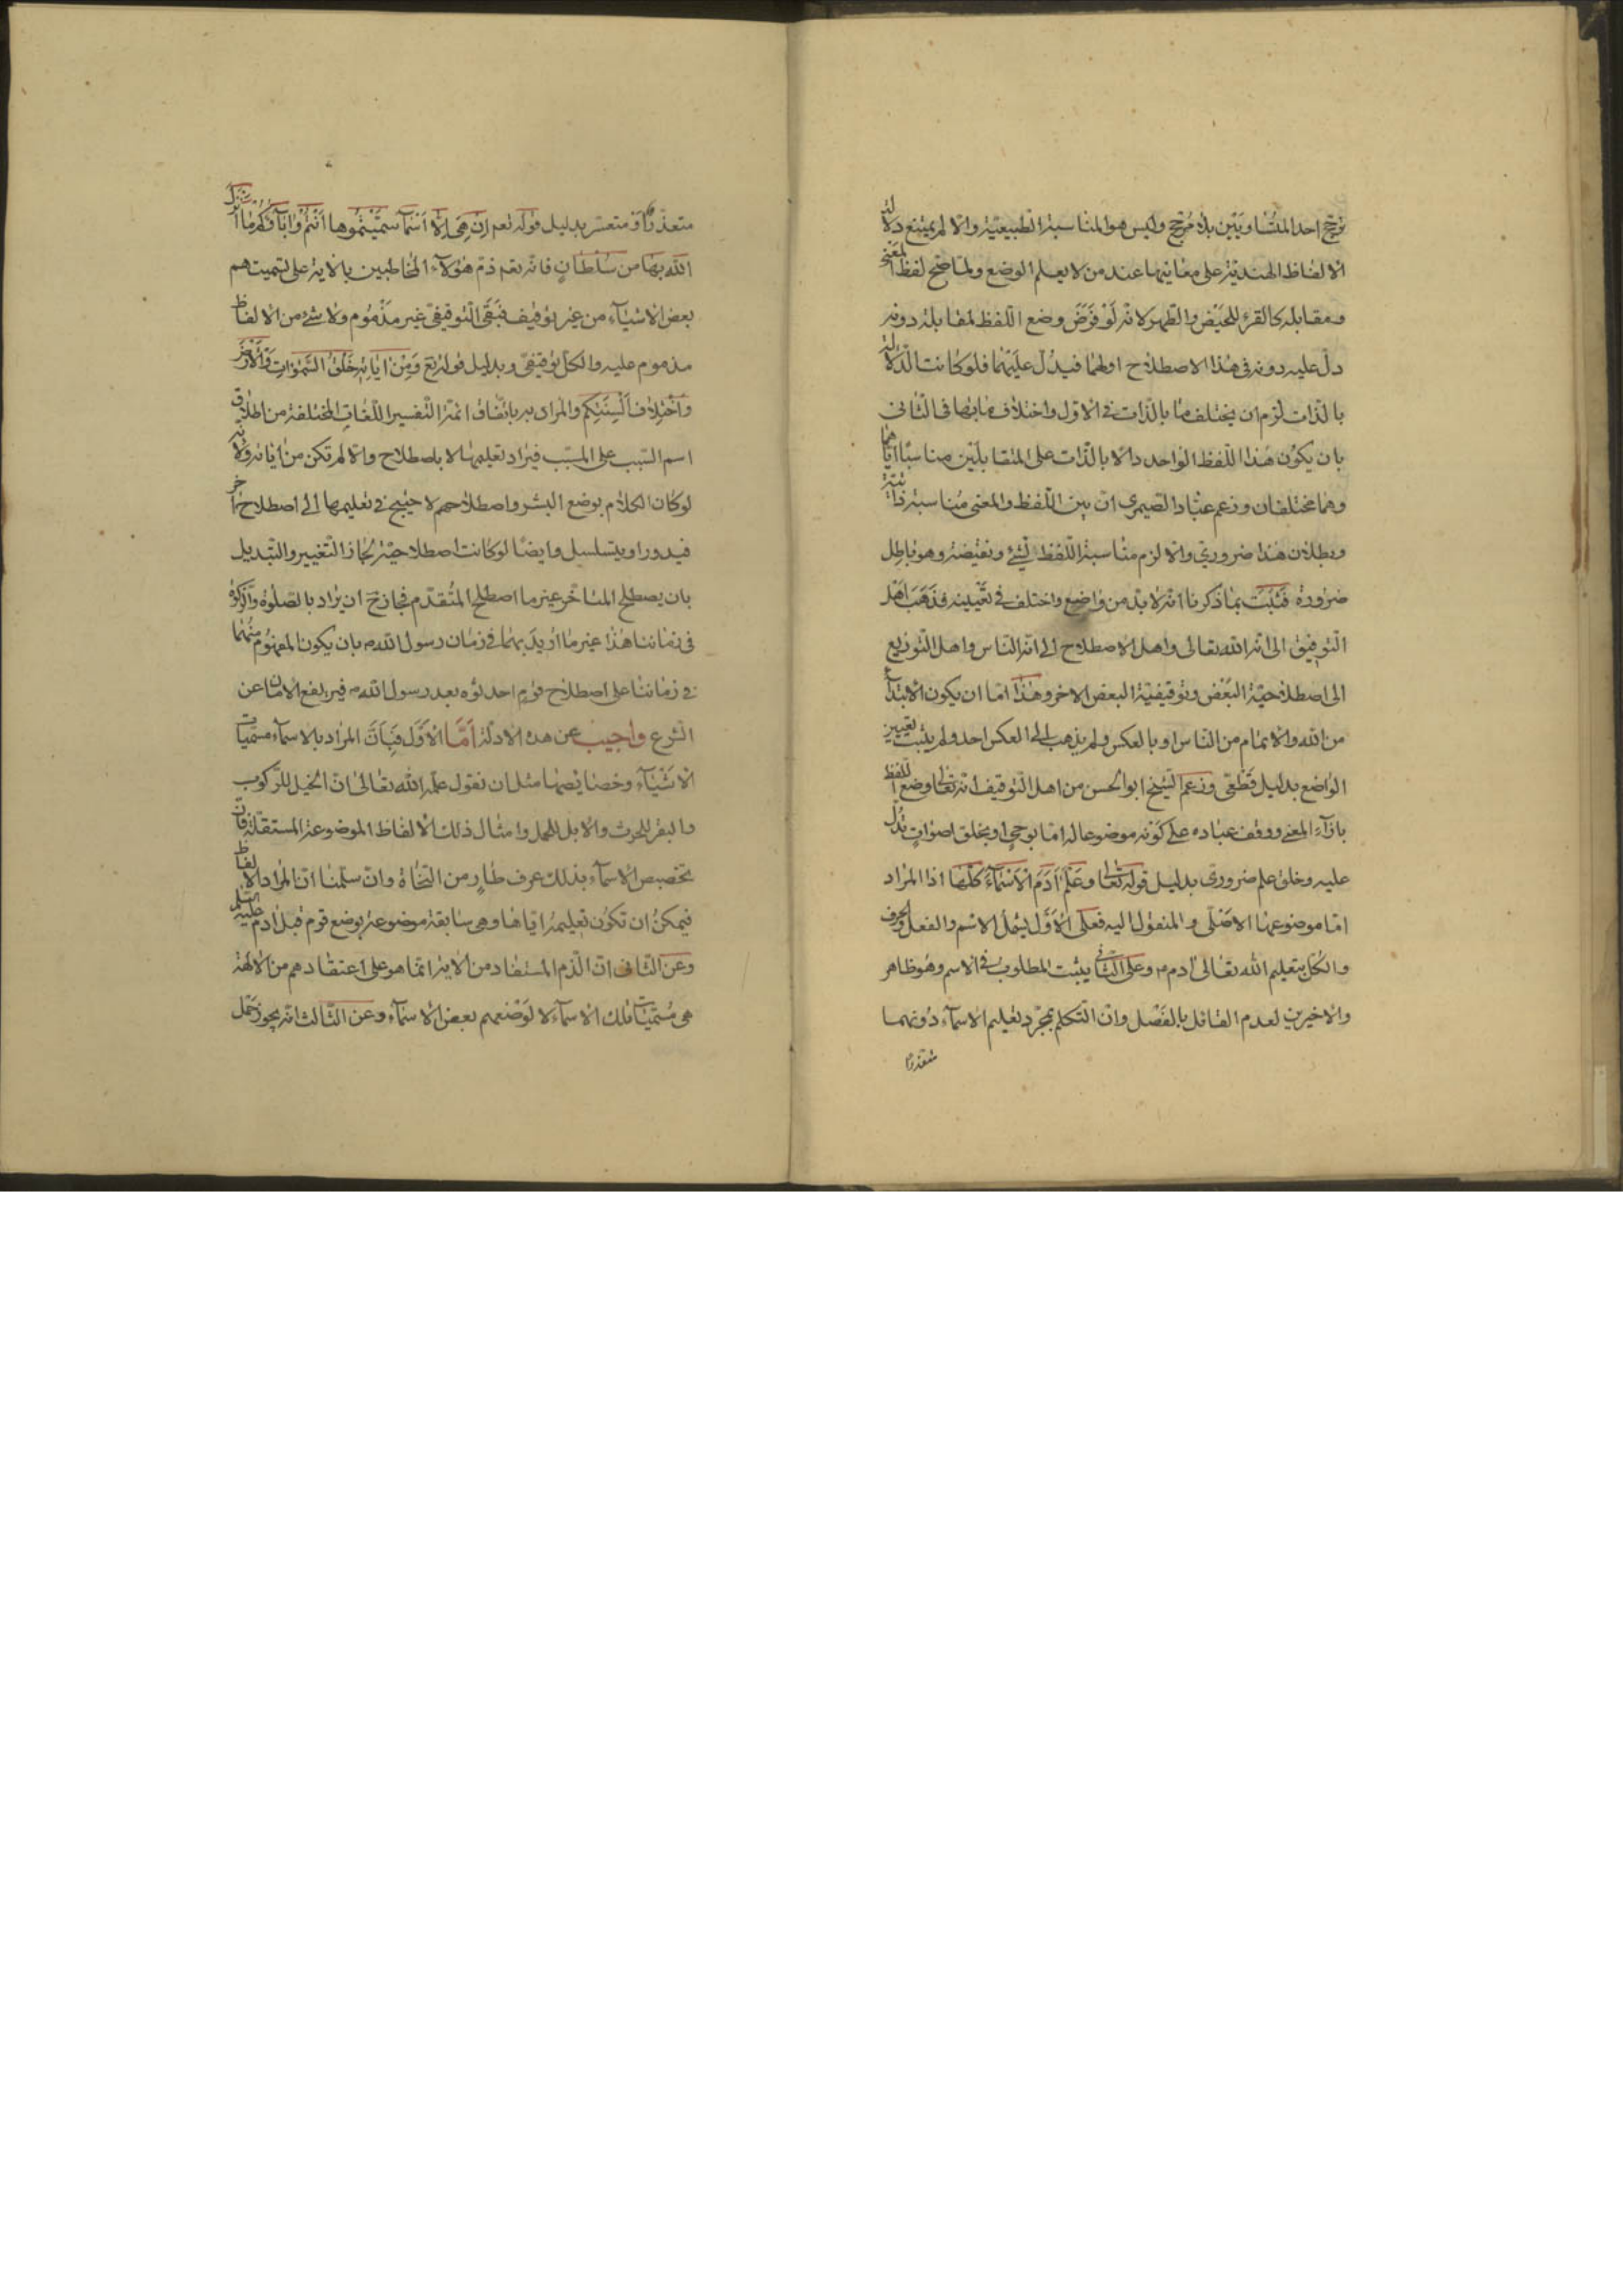 ترجّح احد المتساويَيْن بلا مُرجّح وليس هو المناسبة الطبيعيّة والّا لم يمتنع دلالة
الالفاظ الهنديّة على معانيها عند من لا يعلم الوضع ولما صَحّ لفظ المَعنى
ومقابله كالقرء للحَيْض والطّهر لانّه لَوْ فَرَضَ وضع اللّفظ لمقابله دونه
دلّ عليه دونه فى هذا الاصطلاح اولهما فيدُلّ عليَهما فلو كانت الدّلالة
بالذّات لزم ان يختلف ما بالذّات فى الاوّل واختلاف ما بها فى الثّانى
بان يكوُن هَذا اللّفظ الواحد دالّا بالذّات على المتقابلَيْن مناسبًا ايّاهما
وهما مختلفان وزعم عبّاد الصّيمرى انّ بين اللّفظ والمعنى مُناسبة ذاتيّة
وبطلان هذا ضرورىّ والّا لزم مناسبة اللّفظ لشئ ونقيضه وهو باطِل
ضرورة فَثَبَت بما ذكرنا انّه لا بدّ من وَاضِع واختلف فى تعَّيينه فذهَبَ اهَل
التّوقيف الى انّه الله تعالى واهل الاصطلاح الى انّه النّاس واهل التّوزيع
الى اصطلاحيّة البَعْض وتوقيفيّة البعض الاخر وهذا امّا ان يكون الابتداء
من الله والاتمام من النّاس او بالعكس ولم يذهب الى العكس احد ولم يثبت تعيين
الواضع بدليل قَطْعى وزعم الشّيخ ابو الحسن من اهل التّوقيف انّه تعالى وضع اللّفظ
بازآء المعنى ووقف عباده على كَوْنه موضوعا له امّا بوحى او بخلق اصوَات تدُلّ
عليه وخلق علم ضرورى بدليل قوله تعالى وعَلّمَ آدَمَ الْاَسْمَآءَ كُلَّهَا اذا المرَاد
امّا موضوعها الاصَلى والمنقول اليه فعلى الاَوَّل يشمل الاسْم والفعل والحرف
والكلّ بتعليم الله تعالى آدم م وعلى الثّانى يثبت المطلوب فى الاسم وهُو ظاهر
والاخيرين لعدم القائل بالفَصْل وانّ التّكلم بمجرّد تعليم الاسمآء دُونهما
متعذّرا
متعذّر او متعسّر بدليل قوله تعم اِنْ هِىَ اِلَّا اَسْمَآءٌ سَمَّيْتُمُوها اَنْتُمْ وَابَآؤُكُمْ مَا اَنْزَلَ
الله بِهَا مِن سُلطَانٍ فانّه تعم ذمّ هؤلآء المخاطبين بالاية على تسميتهم
بعض الاشيآء من غير توقيف فبَقَى التّوقيفى غير مذموم ولا شئ من الالفاظ
مذموم عليه والكلّ توقيفىّ وبدليل قوله تع وَمِنْ ايَاتِهِ خَلْقُ السَّموَاتِ وَالْاَرْضِ
وَاخْتِلاَف اَلْسِنَتِكُم والمرَاد به باتّفاق ائمّة التّفسير اللّغات المختلفة من اطلاق
اسم السّبب على المسبّب فيرَاد تعليمها لا باصطلاح والّا لم تكن من آياته ولانّه
لو كان الكلام بوضع البشر واصطلاحهم لاحتيج فى تعليمها الى اصطلاح آخر
فيدور او يتسلسل وايضًا لو كانت اصطلاحيّة لجاز التّغيير والتّبديل
بان يصطلح المتاخّر غير ما اصطلح المتُقدّم فجاز ح ان يُرَاد بالصّلوة والزّكوة
فى زمَاننا هذا غير ما اُريدَ بهما فى زمان رسول الله م بان يكون المفهُوم منهما
فى زماننا على اصطلاح قوم احدثوه بعد رسول الله م فيرتفع الامان عن
الشّرع واجيب عن هذه الادلّة اَمَّا الْاَوَّل فبِاَنَّ المرَاد بالاسمآء مسمّيات
الاَشْيَآء وخصَايصها مثل ان نقول علّمه الله تعَالى انّ الخيل للرّكوب
والبقر للحرث والابل للحمل وامثال ذلك لا الفاظ الموضوعة المستقلّة فانّ
تخصيص الاسمآء بذلك عرف طَارٍ من النّحاة وان سلّمنا انّ المرَاد الالفاظ
فيمكن ان تكوُن تعليمهُ ايّاها وهى سَابقة موضوعة بوضع قوم قبل آدم عليه السّلم
وعن الثّانى انّ الذّم المستفاد من الاية انّما هو على اعتقادهم من الالهة
هى مُسَمّيَات تلك الاسمآء لا لوَضعهم بعض الاسمآء وعن الثّالث انّه يجوز حَمَل